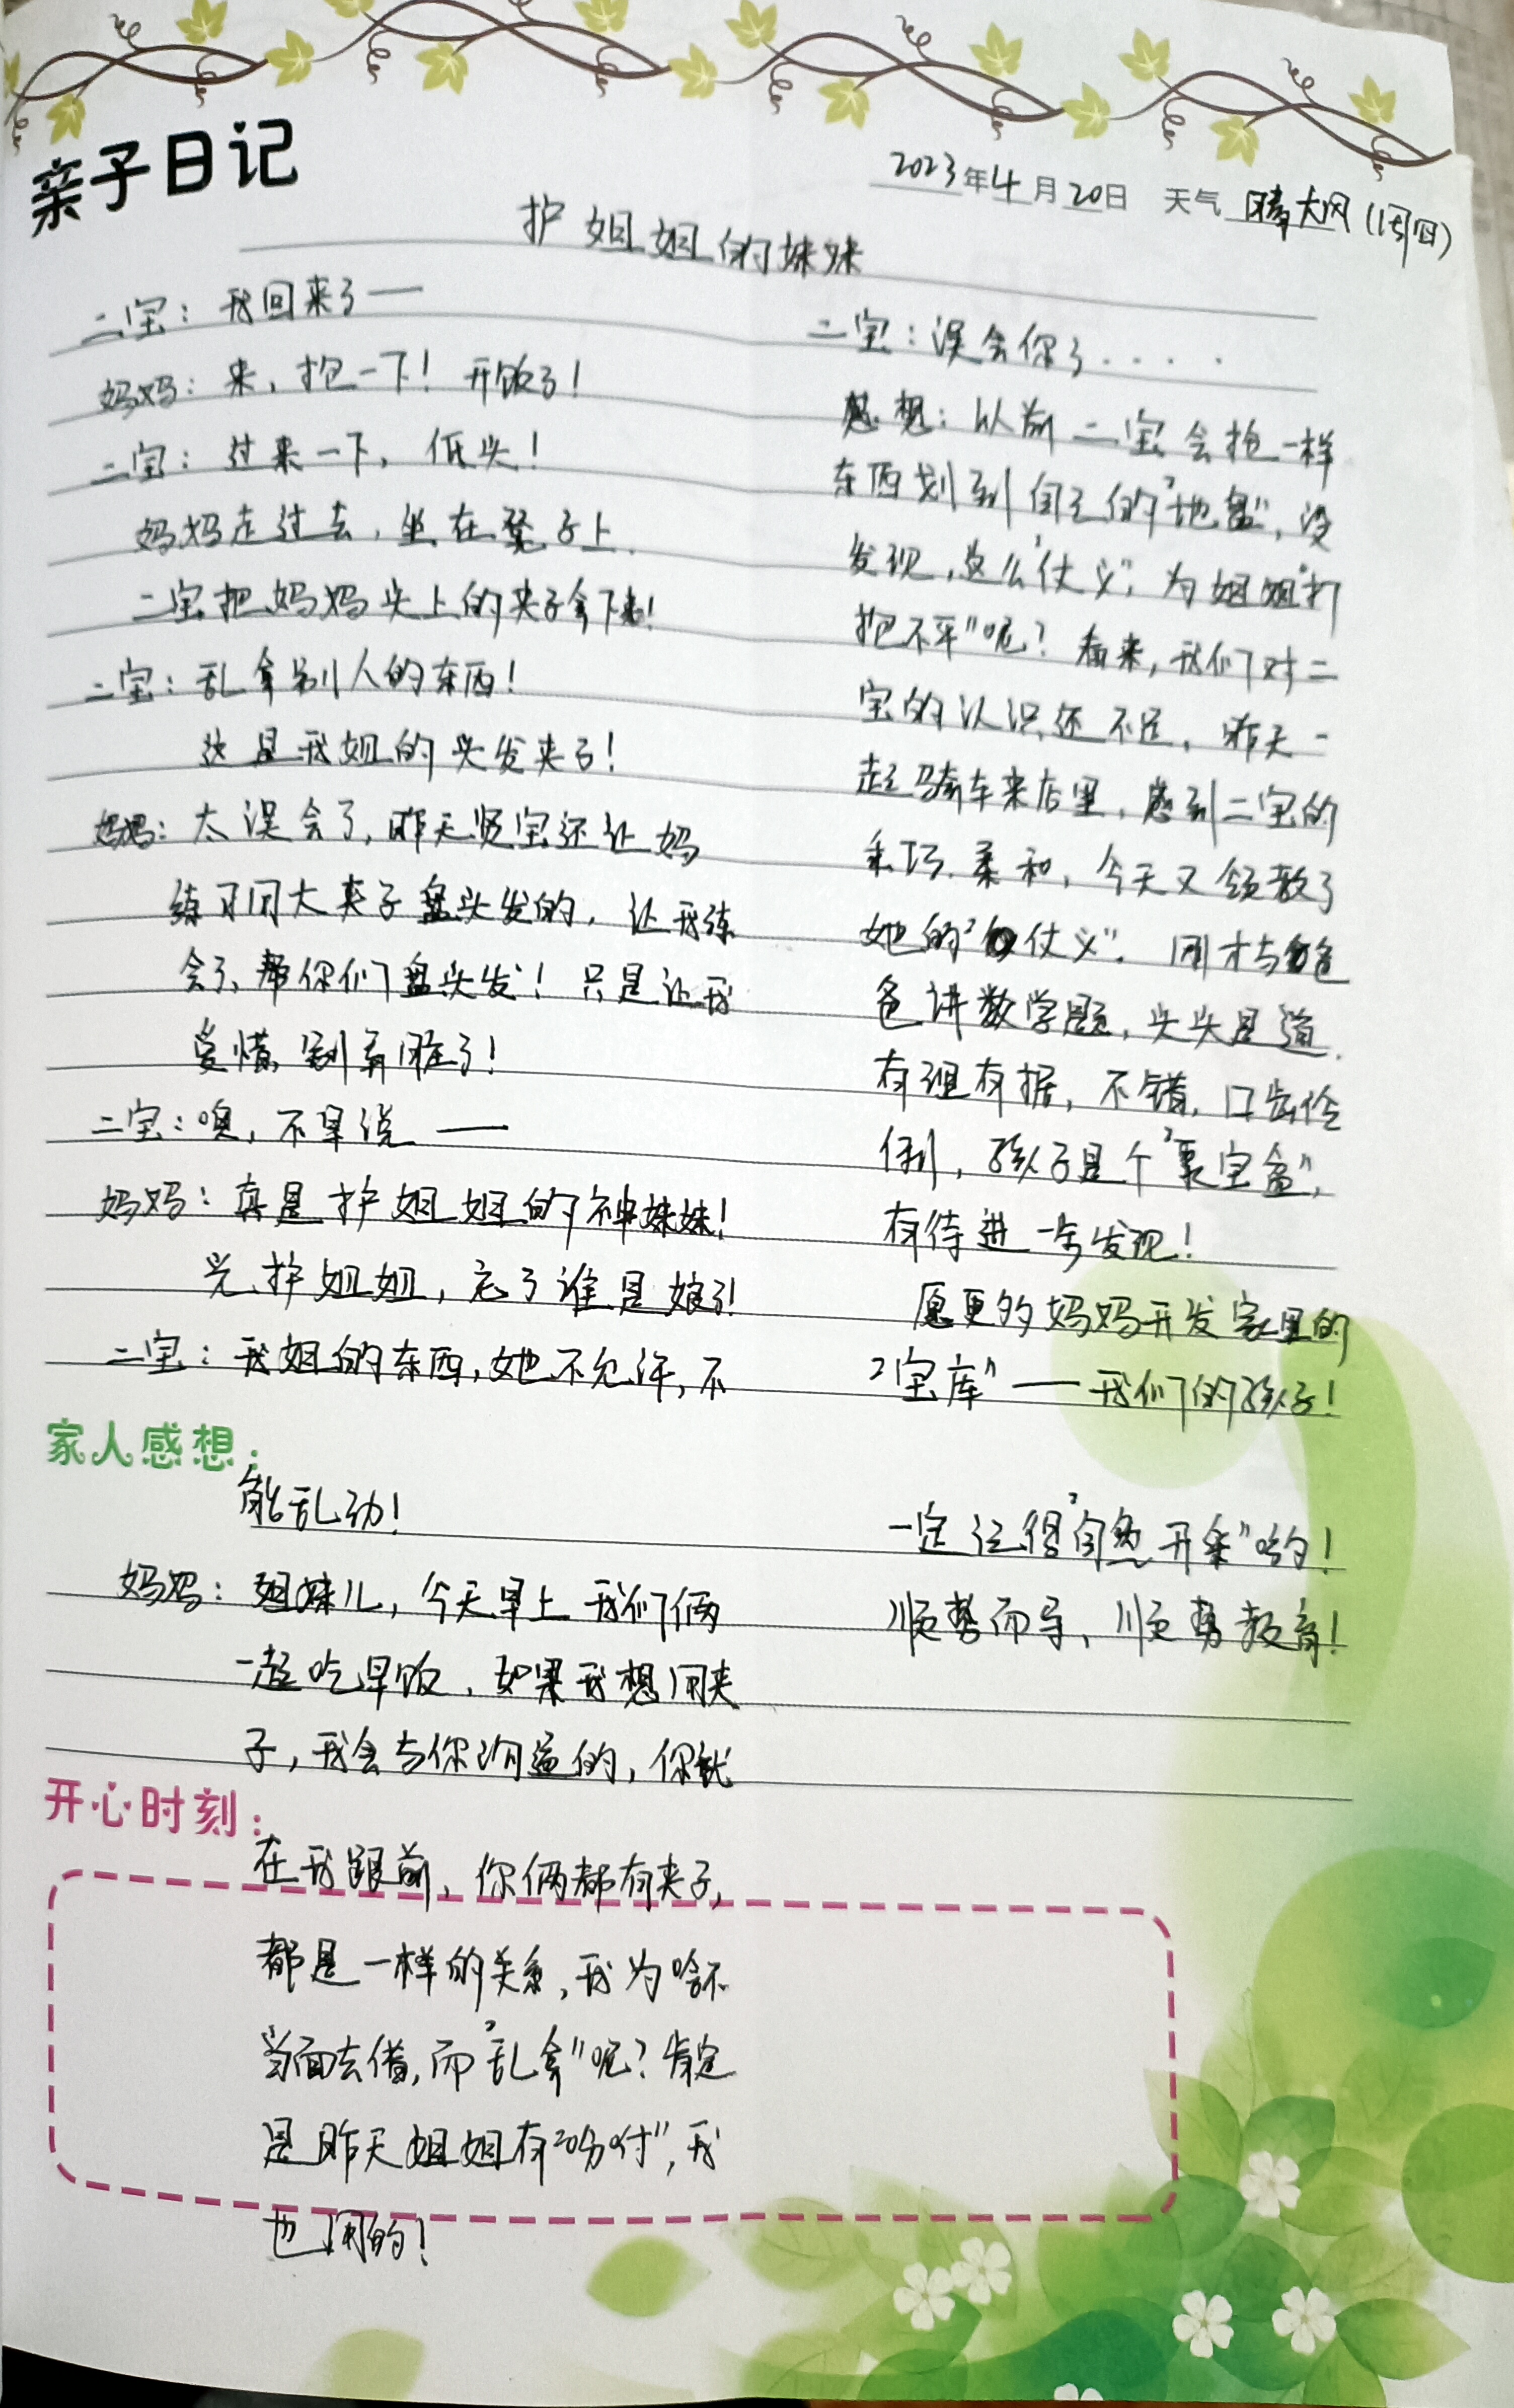 亲子日记
2023年4月20日 天气 晴大风(周四)
护姐姐的妹妹
二宝：我回来了——
妈妈：来，抱一下！开饭了！
二宝：过来一下，低头！
妈妈走过去，坐在凳子上.
二宝把妈妈头上的夹子拿下来！
二宝：乱拿别人的东西！
这是我姐的头发夹子！
妈妈：太误会了，昨天贤宝还让妈
练习用大夹子盘头发的，让我练
会了，帮你们盘头发！只是让我
受惜，别弄脏了！
二宝：噢，不早说——
妈妈：真是护姐姐的神妹妹！
光护姐姐，忘了谁是娘了！
二宝：我姐的东西，她不允许，不
家人感想：
能乱动！
妈妈：姐妹儿，今天早上我们俩
一起吃早饭，如果我想用夹
子，我会与你沟通的，你就
开心时刻：
在我跟前，你俩都有夹子，
都是一样的关系，我为啥不
当面去借，而"乱拿"呢？肯定
是昨天姐姐有"吩咐"，我
也用的！
二宝：误会你了.....
感想：以前二宝会抢一样
东西划到自己的"地盘"，没
发现，这么"仗义"，为姐姐"打
抱不平"呢？看来，我们对二
宝的认识还不足，昨天一
起骑车来店里，感到二宝的
乖巧.柔和，今天又领教了
她的"仗义"。刚才与爸
爸讲数学题，头头是道.
有理有据，不错，口齿伶
俐，孩子是个"百宝盒"，
有待进一步发现！
愿更多妈妈开发家里的
"宝库"——我们的孩子！
一定记得"自然开采"哟！
顺势而导，顺势教育！